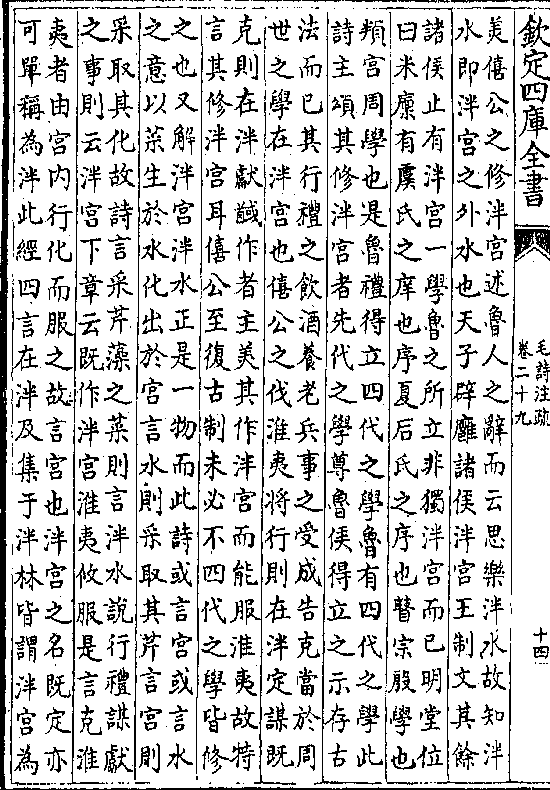 欽定四庫全書
毛詩注疏
卷二十九
十四
美僖公之修泮宮述魯人之辭而云思樂泮水故知泮
水即泮宮之外水也天子辟廱諸侯泮宮王制文其餘
諸侯止有泮宮一學魯之所立非獨泮宮而已明堂位
曰米廩有虞氏之庠也序夏后氏之序也瞽宗殷學也
頖宮周學也是魯禮得立四代之學魯有四代之學此
詩主頌其修泮宮者先代之學尊魯侯得立之示存古
法而已其行禮之飲酒養老兵事之受成告克當於周
世之學在泮宮也僖公之伐淮夷將行則在泮定謀既
克則在泮獻馘作者主美其作泮宮而能服淮夷故特
言其修泮宮耳僖公至復古制未必不四代之學皆修
之也又解泮宮泮水正是一物而此詩或言宮或言水
之意以菜生於水化出於宮言水則采取其芹言宮則
采取其化故詩言采芹藻之菜則言泮水說行禮謀獻
之事則云泮宮下章云既作泮宮淮夷攸服是言克淮
夷者由宮内行化而服之故言宮也泮宮之名既定亦
可單稱為泮此經四言在泮及集于泮林皆謂泮宮為